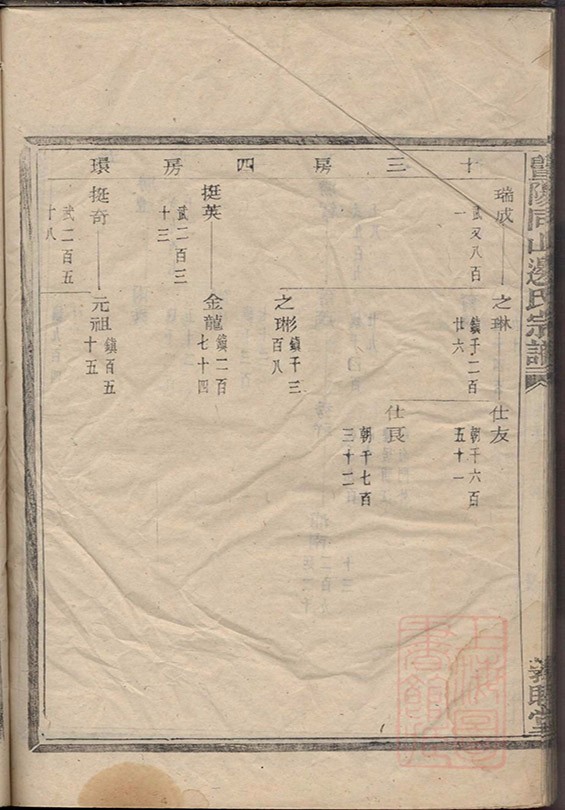 暨陽同山邊氏宗譜
十三房四房環
瑞成
武又八百
一
之琳
鎮千二百
廿六
仕友
朝千六百
五十一
仕良
朝千七百
三十二
之彬
鎮千三
百八
挺英
武二百三
十三
金龍
鎮二百
七十四
挺奇
武二百五
十八
元祖
鎮百五
十五